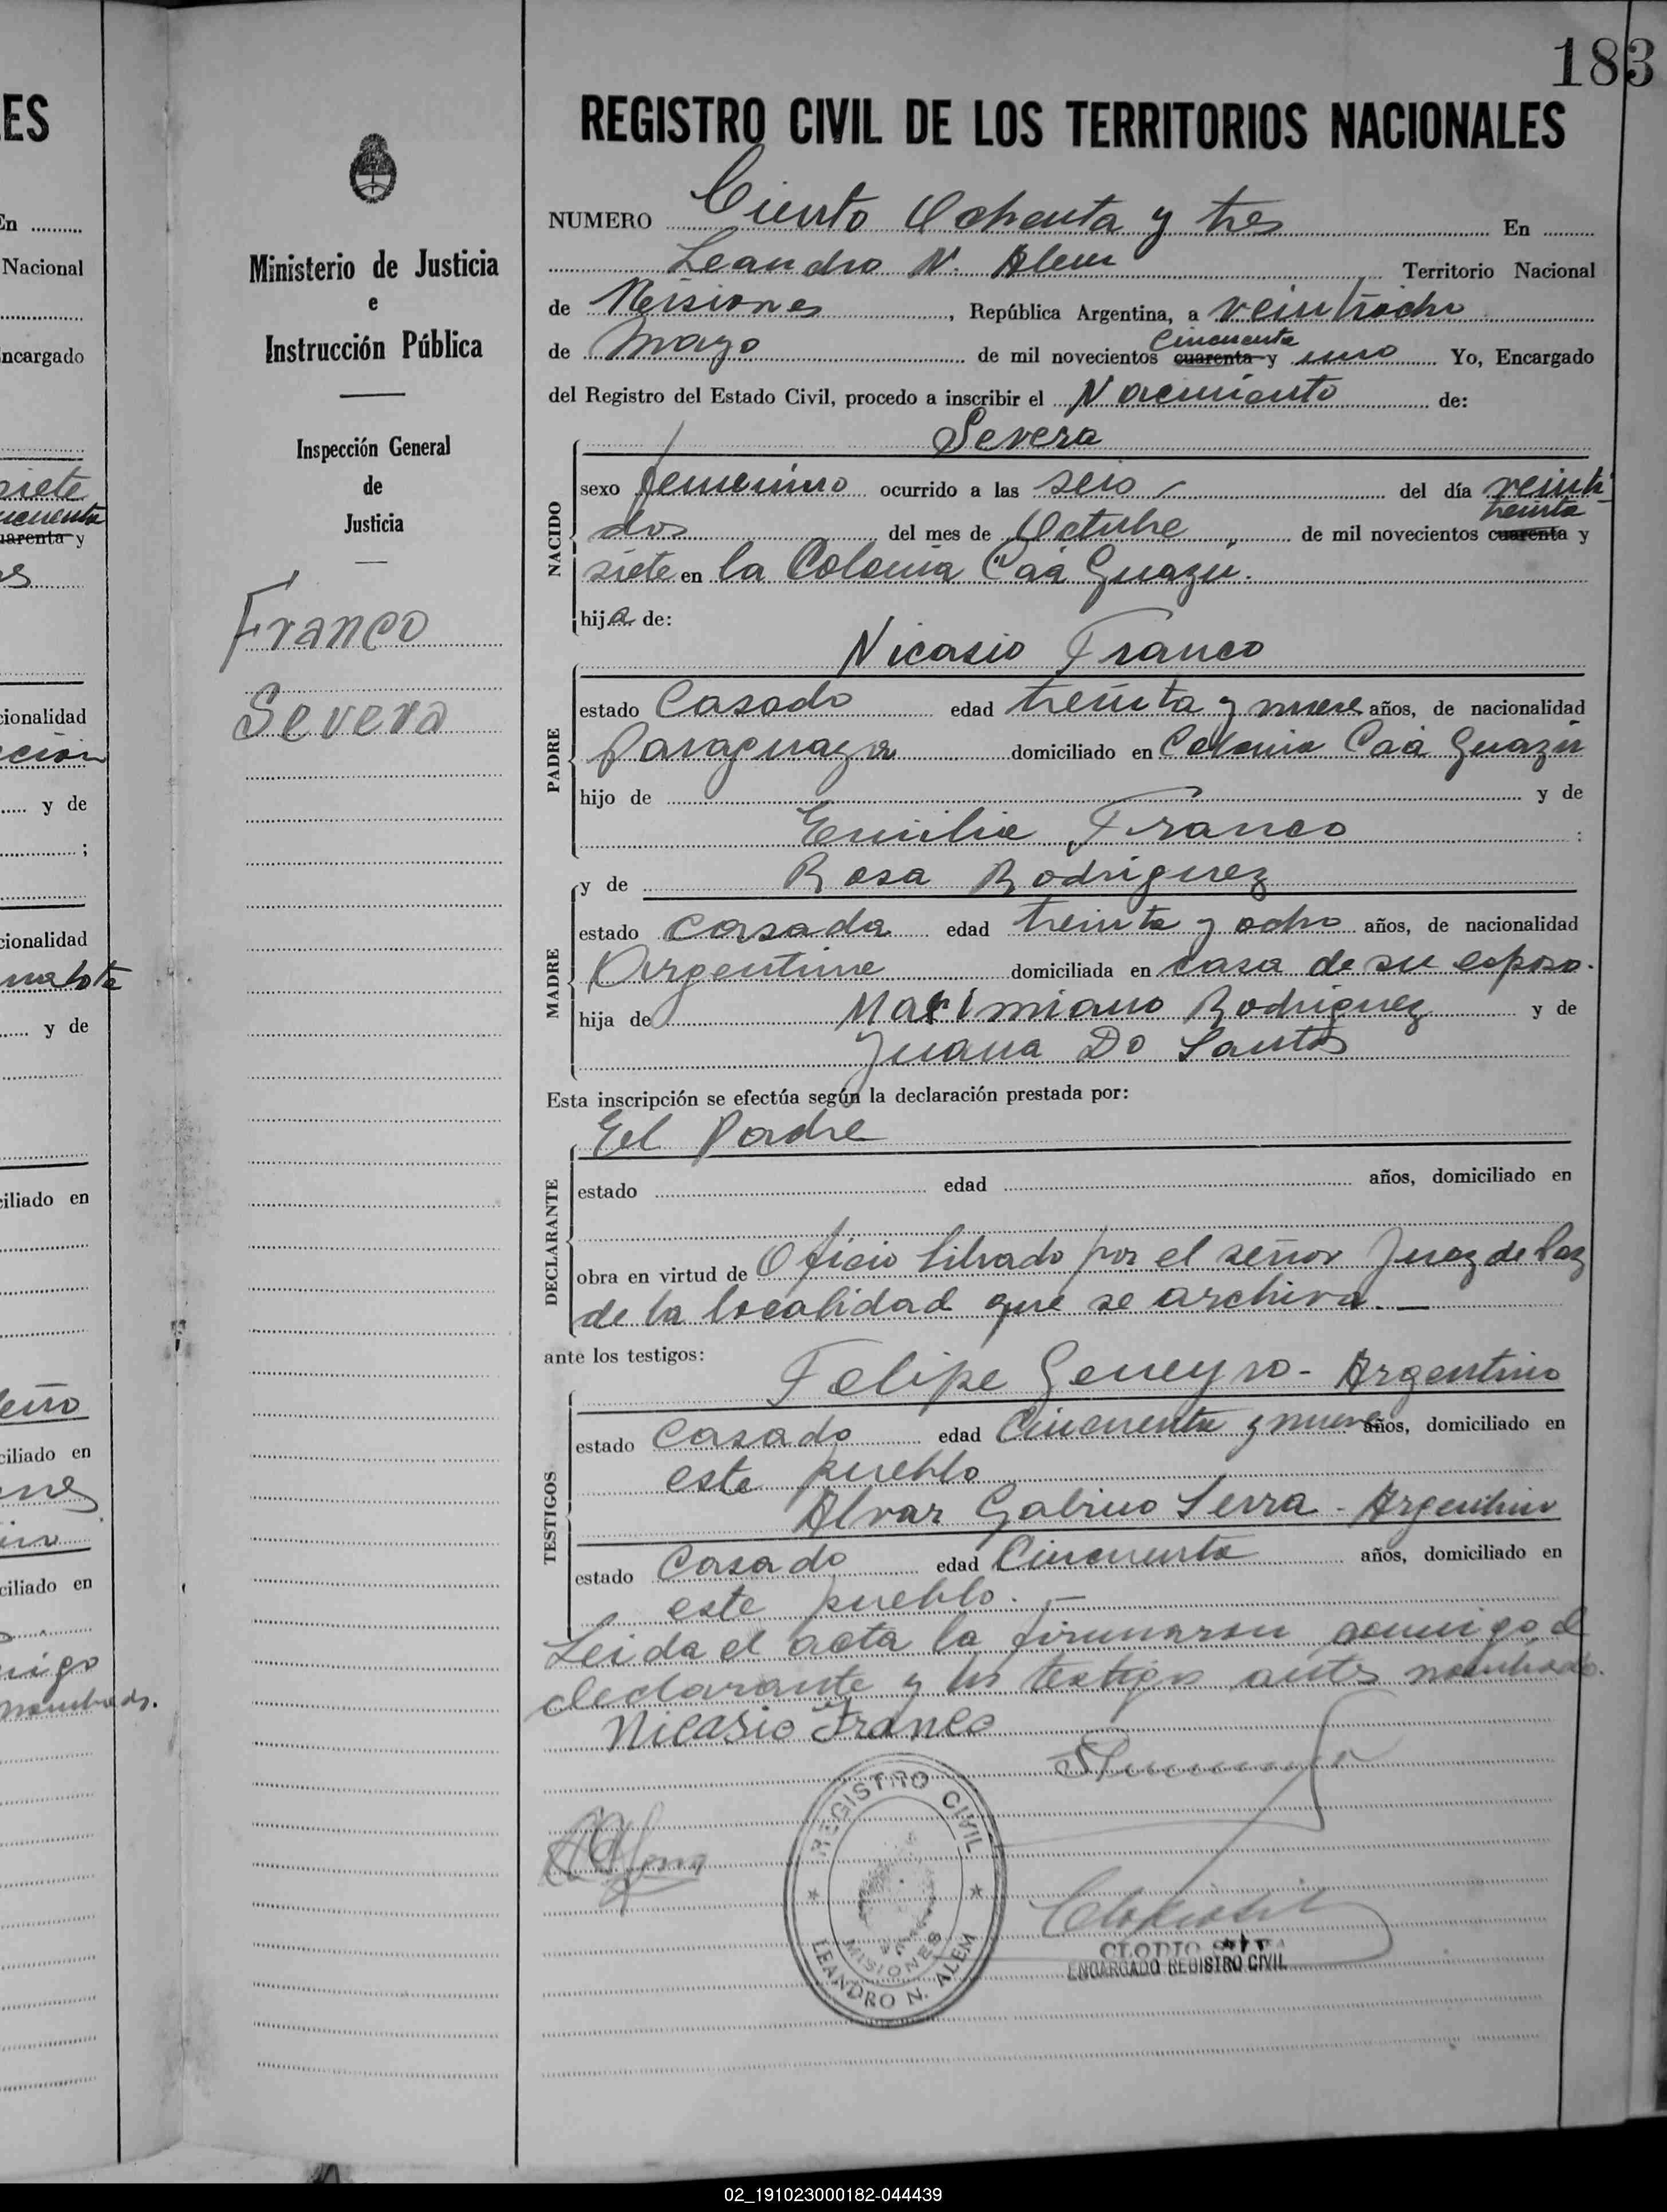 183
REGISTRO CIVIL DE LOS TERRITORIOS NACIONALES
NUMERO Ciento Ochenta y tres En
Leandro N. Alem Territorio Nacional
de Misiones, República Argentina, a veintiocho
de Mayo de mil novecientos cuarenta cincuenta y uno Yo, Encargado
del Registro del Estado Civil, procedo a inscribir el Nacimiento de:
Severa
NACIDO
sexo femenino ocurrido a las seis del día veinti
dos del mes de Octubre de mil novecientos cuarenta treinta y
siete en la Colonia Caá Guazú.
hija de:
Nicasio Franco
PADRE
estado Casado edad treinta y nueve años, de nacionalidad
Paraguaya domiciliado en Colonia Caá Guazú
hijo de y de
Emilia Franco
y de Rosa Rodriguez
MADRE
estado casada edad treinta y ocho años, de nacionalidad
Argentina domiciliada en casa de su esposo.
hija de Maximiano Rodriguez y de
Juana Do Santos
Esta inscripción se efectúa según la declaración prestada por:
El Padre
DECLARANTE
estado edad años, domiciliado en
obra en virtud de Oficio librado por el señor Juez de Paz
de la localidad que se archiva.
ante los testigos:
Felipe Geneyro - Argentino
TESTIGOS
estado Casado edad Cincuenta y nueve años, domiciliado en
este pueblo
Alvar Gabino Serra - Argentino
estado Casado edad Cincuenta años, domiciliado en
este pueblo. -
Leida el acta la firmaron conmigo el
declarante y los testigos antes nombrados.
Nicasio Franco
REGISTRO CIVIL
MISIONES
LEANDRO N. ALEM
CLODIO
ENCARGADO REGISTRO CIVIL
Ministerio de Justicia
e
Instrucción Pública
Inspección General
de
Justicia
Franco
Severa
ES
En
Nacional
ncargado
siete
cuarenta y
cionalidad
y de
;
cionalidad
y de
ciliado en
ciliado en
ciliado en
nombrados.
02_191023000182-044439